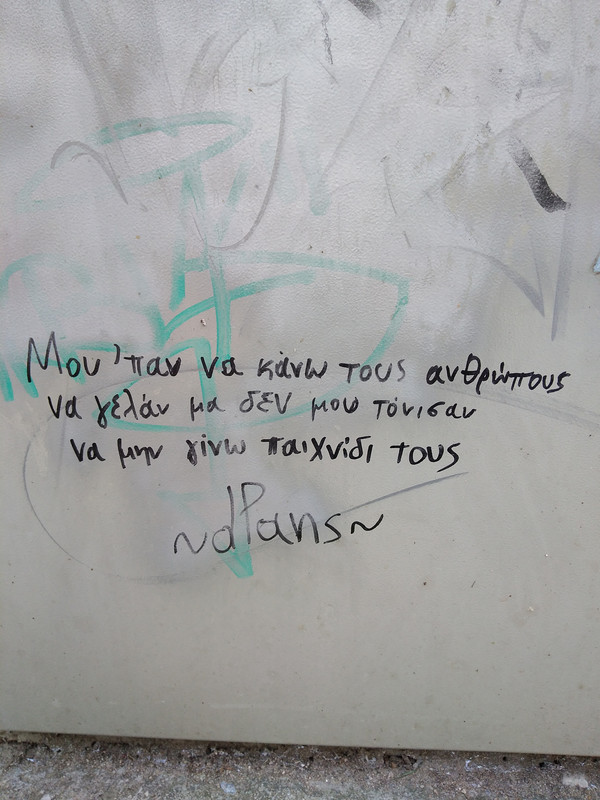 Μου 'παν να κάνω τους ανθρώπους
να γελάν μα δεν μου τόνισαν
να μην γίνω παιχνίδι τους
~dPans~